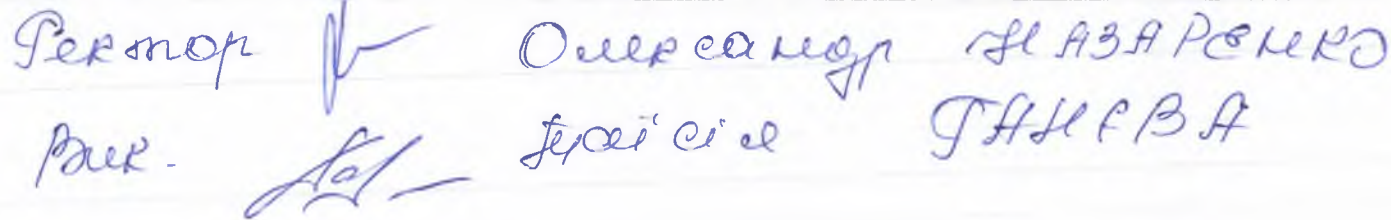 Ректор Олександр НАЗАРЕНКО
Вик. Таїсія ГАНЄВА